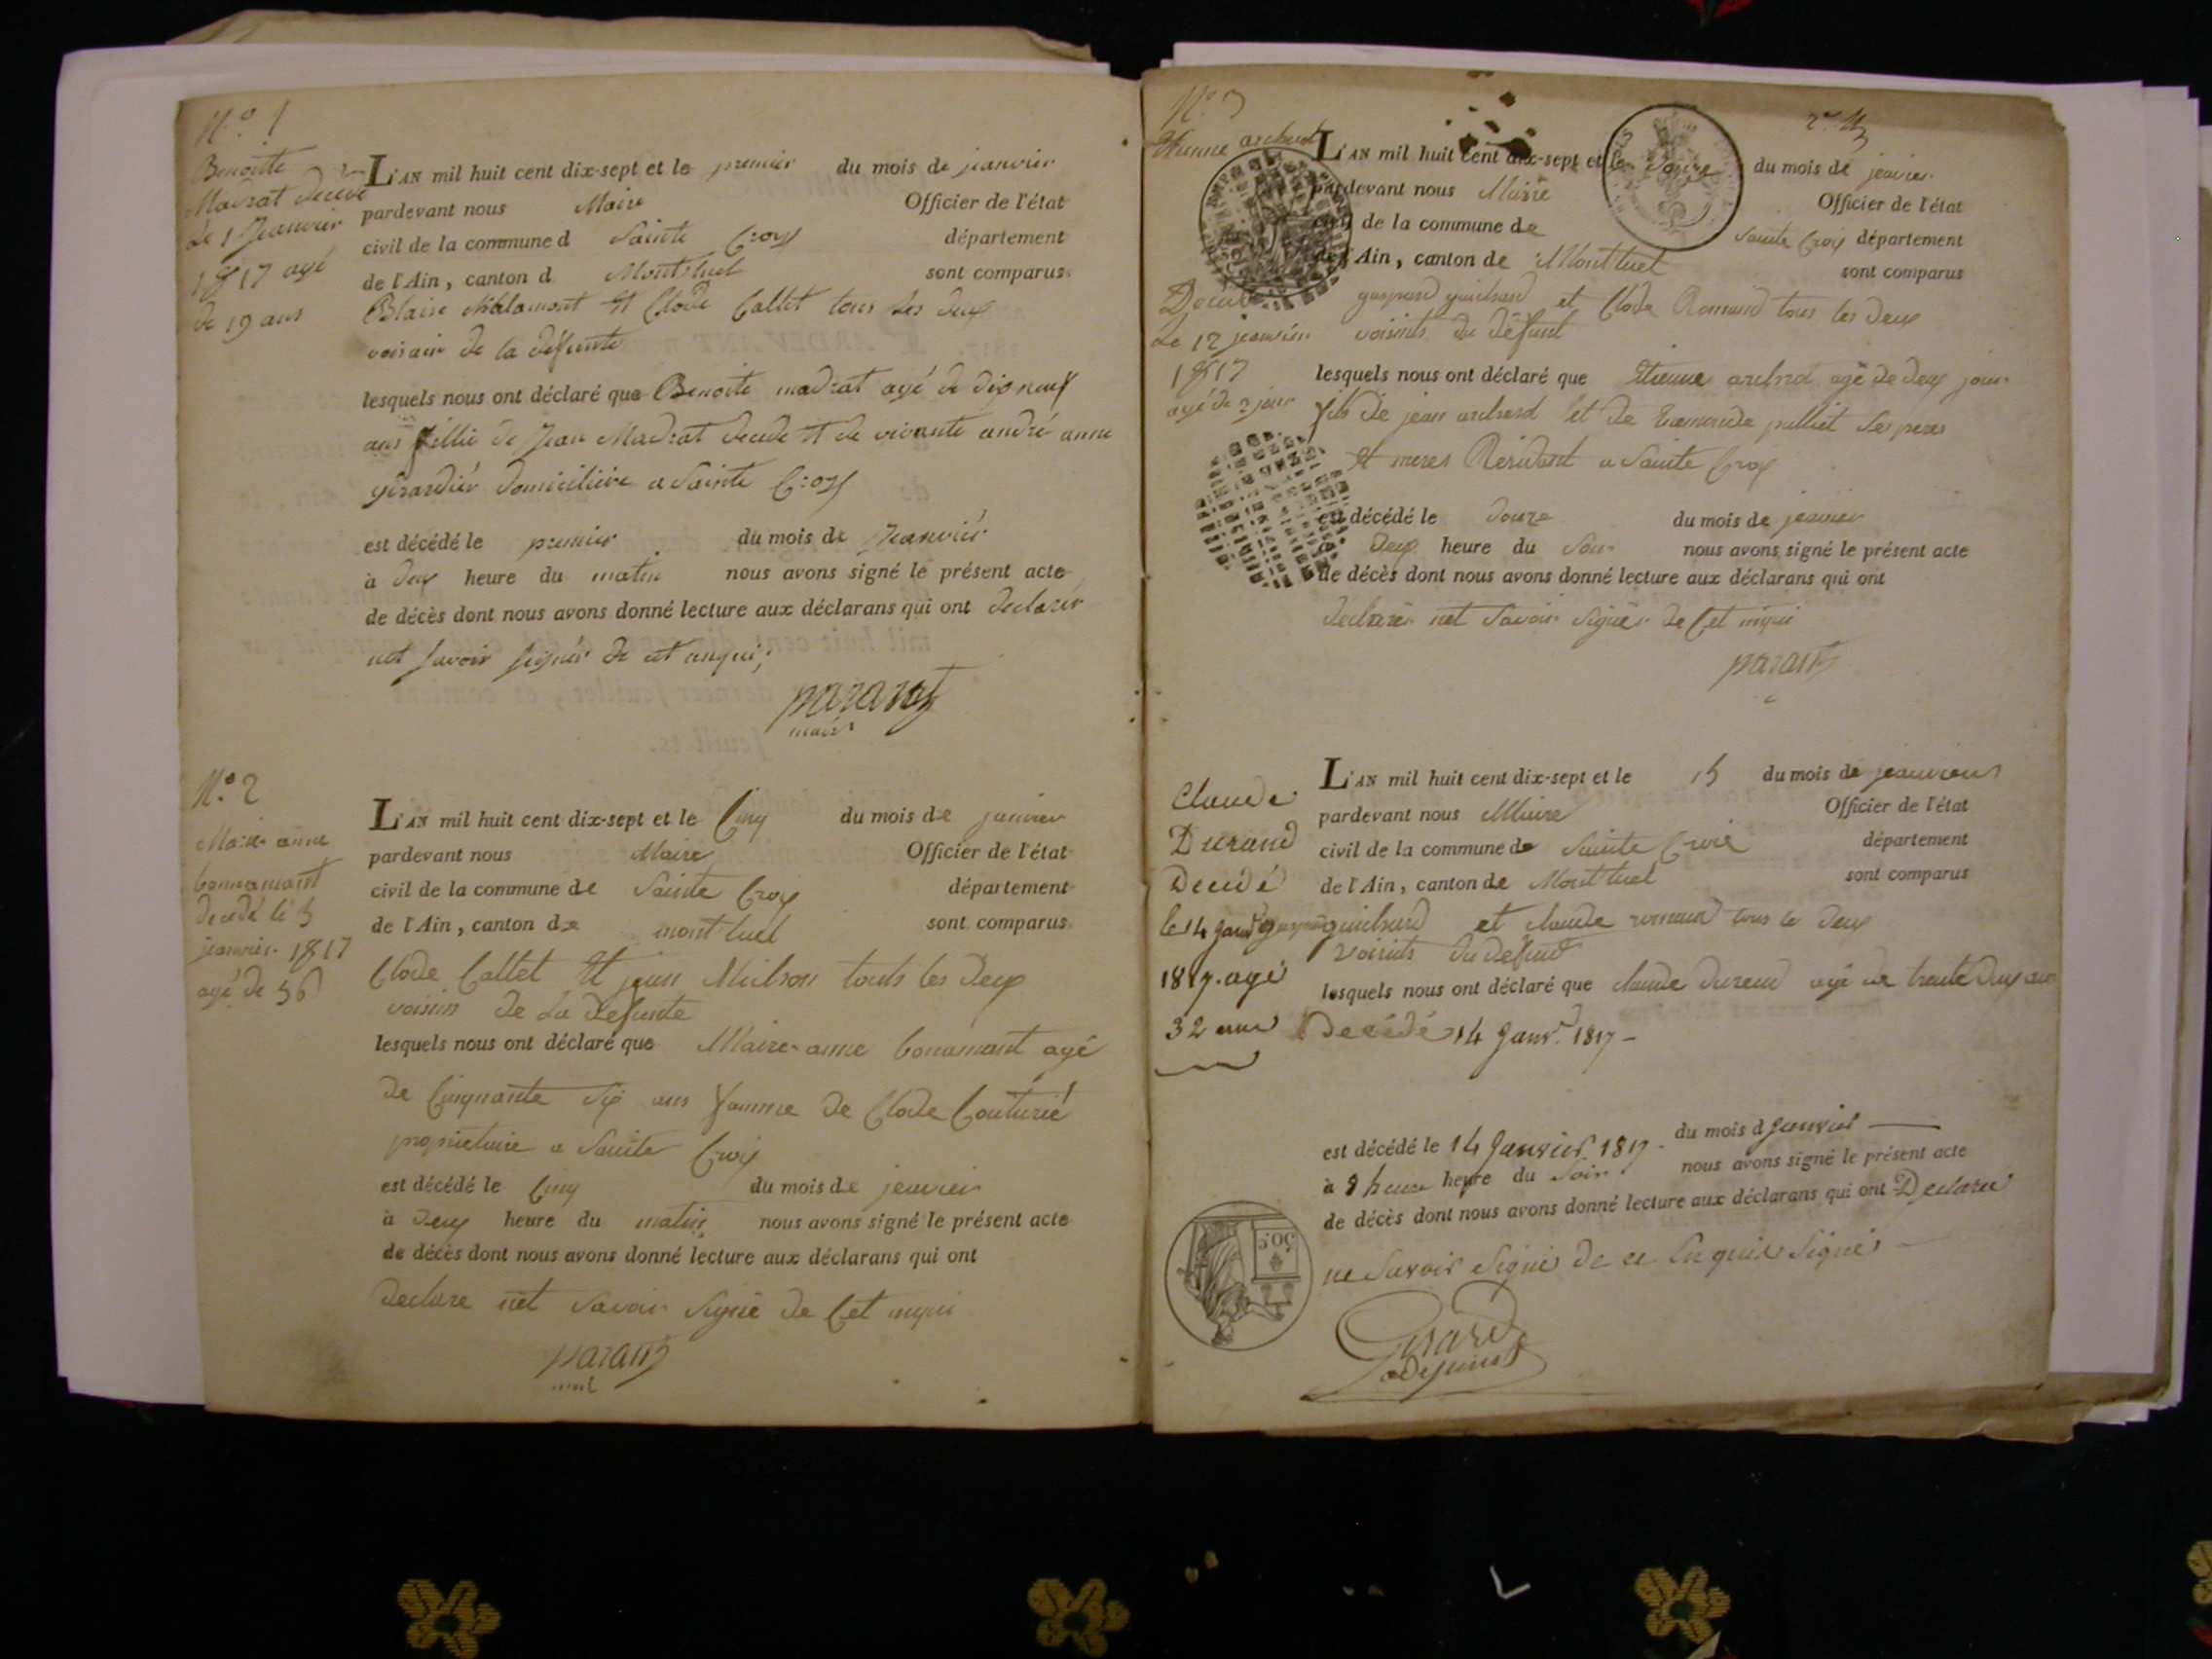 N.o 1
Benoite
Madrat décédé
le 1 Jeanvier
1817 agé
de 19 ans
L'AN mil huit cent dix-sept et le premier du mois de jeanvier
pardevant nous Maire Officier de l'état
civil de la commune d Sainte Croy département
de l'Ain, canton d Montluel sont comparus
Blaise et Clode Callet tous les deux
voisain de la defunte
lesquels nous ont déclaré que Benoite madrat agé de dis neuf
ans fillie de Jean Madrat decede et de vivante andré anne
girardier domiciliére a Sainte Croy
est décédé le premier du mois de Jeanvier
à deux heure du matin nous avons signé le présent acte
de décès dont nous avons donné lecture aux déclarans qui ont declarer
net savoir signer de cet anqui;
parant
maire
N.o 2
Marie anne
bonnamant
decedé le 5
jeanvier 1817
agé de 56
L'AN mil huit cent dix-sept et le Cinq du mois de janvier
pardevant nous Maire Officier de l'état
civil de la commune de Sainte Croix département
de l'Ain, canton de montluel sont comparus
Clode Callet et jean Milson touts les deux
voisins de La defunte
lesquels nous ont déclaré que Maire-anne bonamant agé
de Cinquante six ans famme de Clode Couturié
proprietaire a Sainte Croix
est décédé le Cinq du mois de jenvier
à deux heure du matin nous avons signé le présent acte
de décès dont nous avons donné lecture aux déclarans qui ont
declare net savoir signé de Cet enqui
parant
N.o 3
Etienne archerd
Décédé
Le 12 jeanvier
1817
agé de 2 jour
L'AN mil huit cent dix-sept et le douze du mois de jeanvier
pardevant nous Maire Officier de l'état
civil de la commune de Sainte Croix département
de l'Ain, canton de Montluel sont comparus
gaspard guichard et Clode Romand tous les deux
voisints du défunt
lesquels nous ont déclaré que Etienne archerd agé de deux jour
fils de jean archerd et de pulliet ses peres
et meres Résidant a Sainte Croy
est décédé le douze du mois de jeanvier
à deux heure du soir nous avons signé le présent acte
de décès dont nous avons donné lecture aux déclarans qui ont
declarer net savoir signer de Cet enqui
parant
Claude
Durand
Decidé
le 14 Janv.r
1817. agé
32 ans
L'AN mil huit cent dix-sept et le 15 du mois de
pardevant nous Maire Officier de l'état
civil de la commune de Sainte Croix département
de l'Ain, canton de Montluel sont comparus
guichard et claude romand tous le deux
voisints du defunt
lesquels nous ont déclaré que claude durand agé de trente deux ans
Decédé 14 Janv.r 1817 -
est décédé le 14 Janvier 1817 - du mois d Janvier
à 8 heure heure du Soir nous avons signé le présent acte
de décès dont nous avons donné lecture aux déclarans qui ont Declaré
ne Savoir Signer de ce Enquis Signer
50.C
Girard